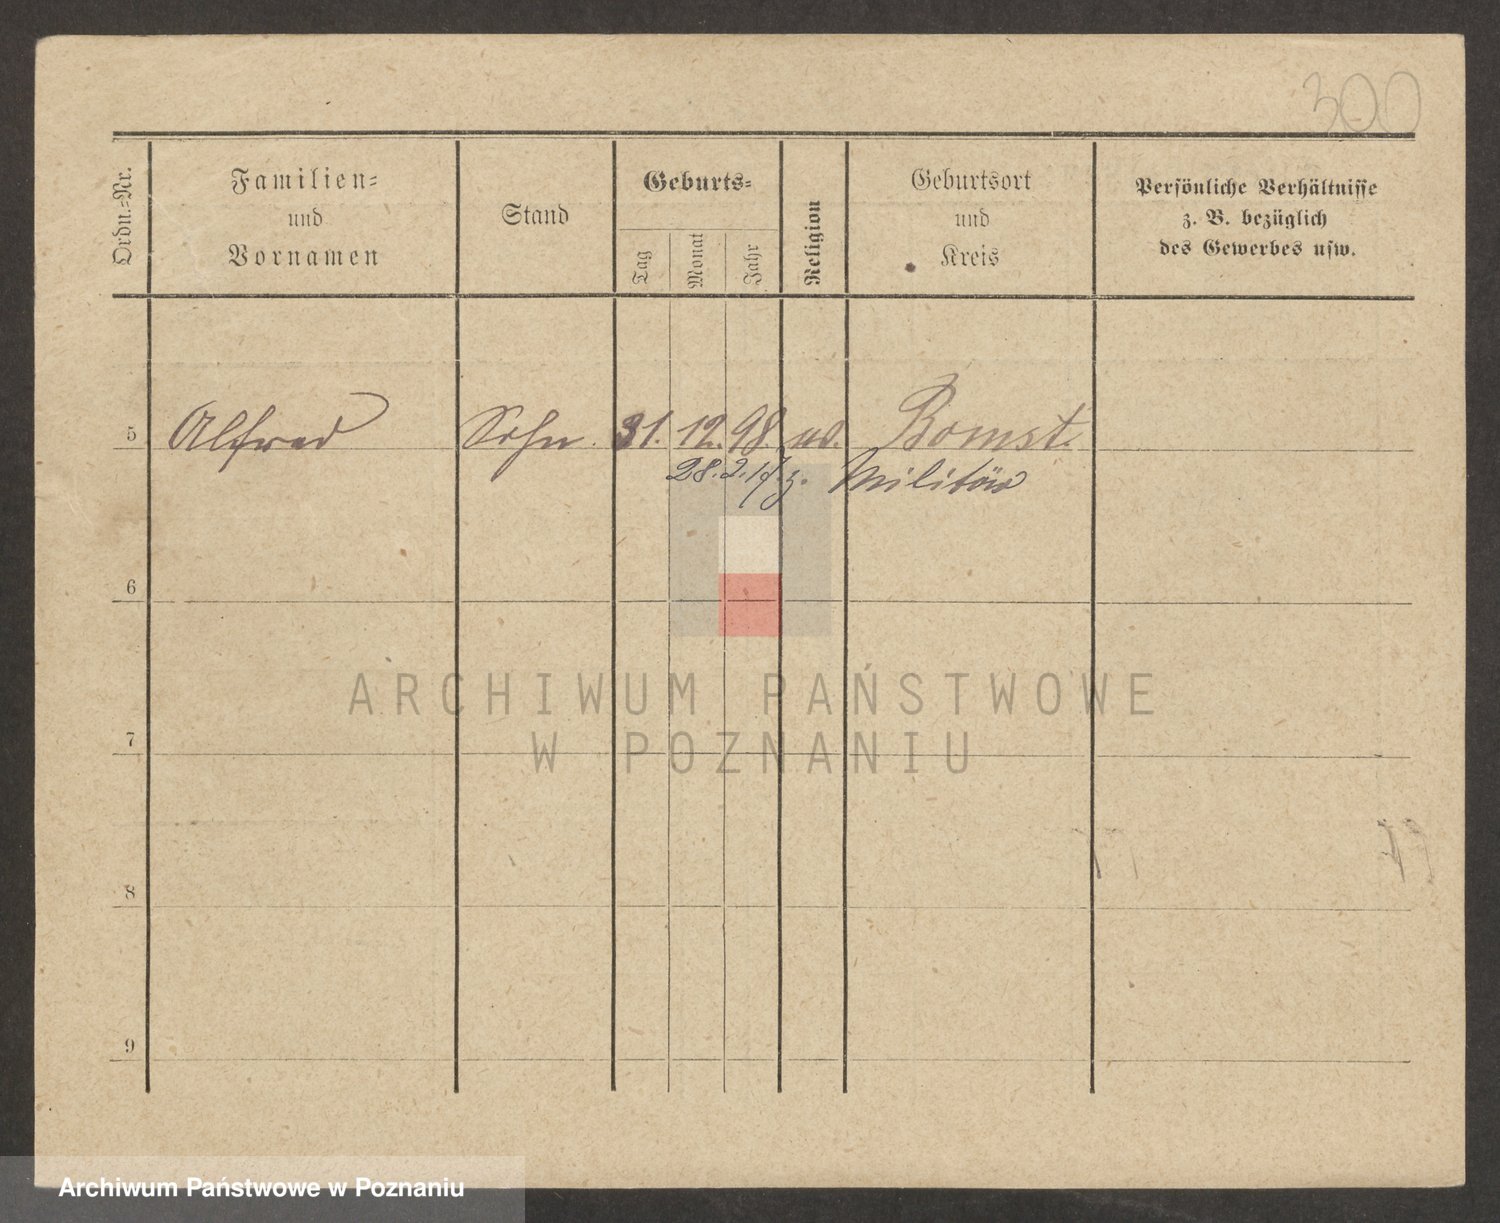 300
Ordn.-Nr.
Familien-
und
Vornamen
Stand
Geburts-
Tag
Monat
Jahr
Religion
Geburtsort
und
Kreis
Persönliche Verhältnisse
z. B. bezüglich
des Gewerbes usw.
5 Alfred Sohn. 31. 12. 98. Bomst.
28. 2. 17 z. Militär
6
ARCHIWUM PAŃSTWOWE
W POZNANIU
7
8
9
Archiwum Państwowe w Poznaniu